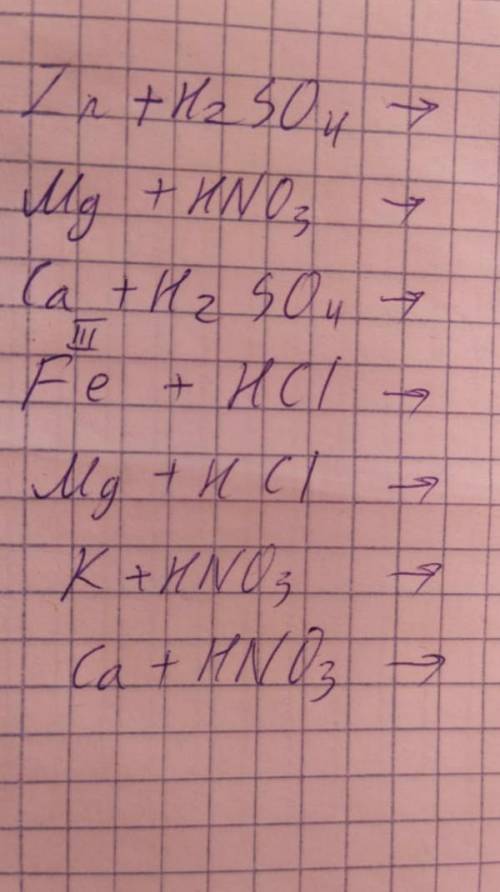 Zn + H2SO4 →
Mg + HNO3 →
Ca + H2SO4 →
III
Fe + HCl →
Mg + HCl →
K + HNO3 →
Ca + HNO3 →